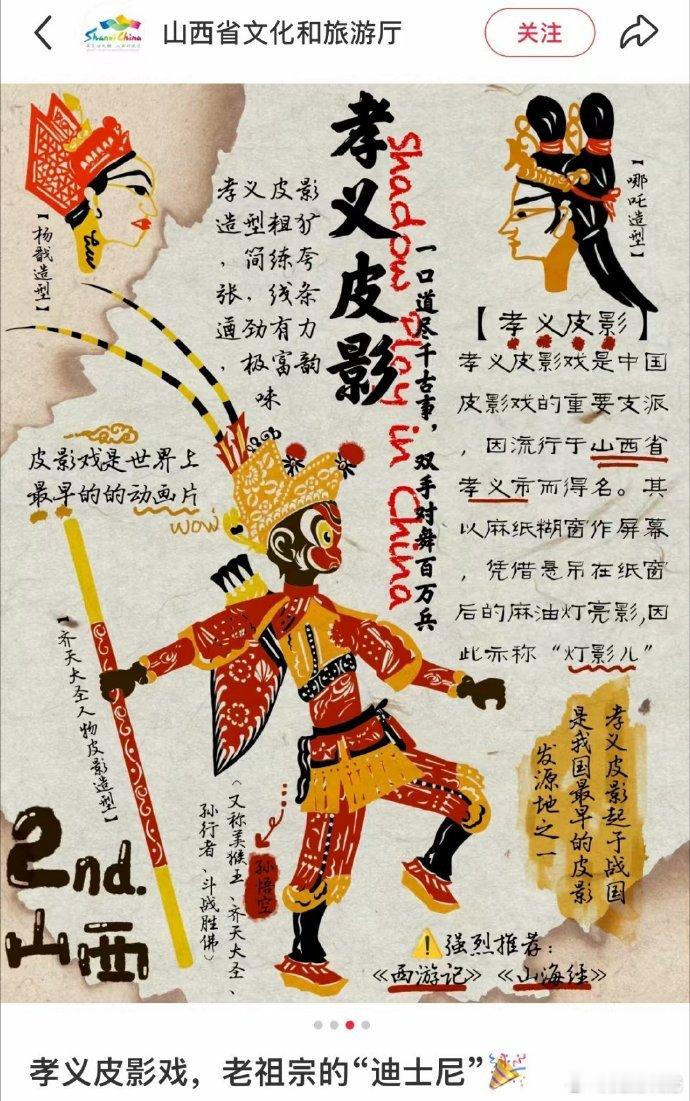 山西省文化和旅游厅
关注
Shanxi China
孝义皮影
Shadow Play in China
一口道尽千古事，双手对舞百万兵
【杨戬造型】
孝义皮影
造型粗犷
，简练夸
张，线条
遒劲有力
，极富韵
味
【哪吒造型】
【孝义皮影】
孝义皮影戏是中国
皮影戏的重要支派
，因流行于山西省
孝义市而得名。其
以麻纸糊窗作屏幕
，凭借悬吊在纸窗
后的麻油灯亮影，因
此亦称“灯影儿”
皮影戏是世界上
最早的的动画片
wow
【齐天大圣人物皮影造型】
（又称美猴王、齐天大圣、
孙行者、斗战胜佛）
孙悟空
孝义皮影起于战国
是我国最早的皮影
发源地之一
2nd.
山西
强烈推荐：
《西游记》《山海经》
孝义皮影戏，老祖宗的“迪士尼”